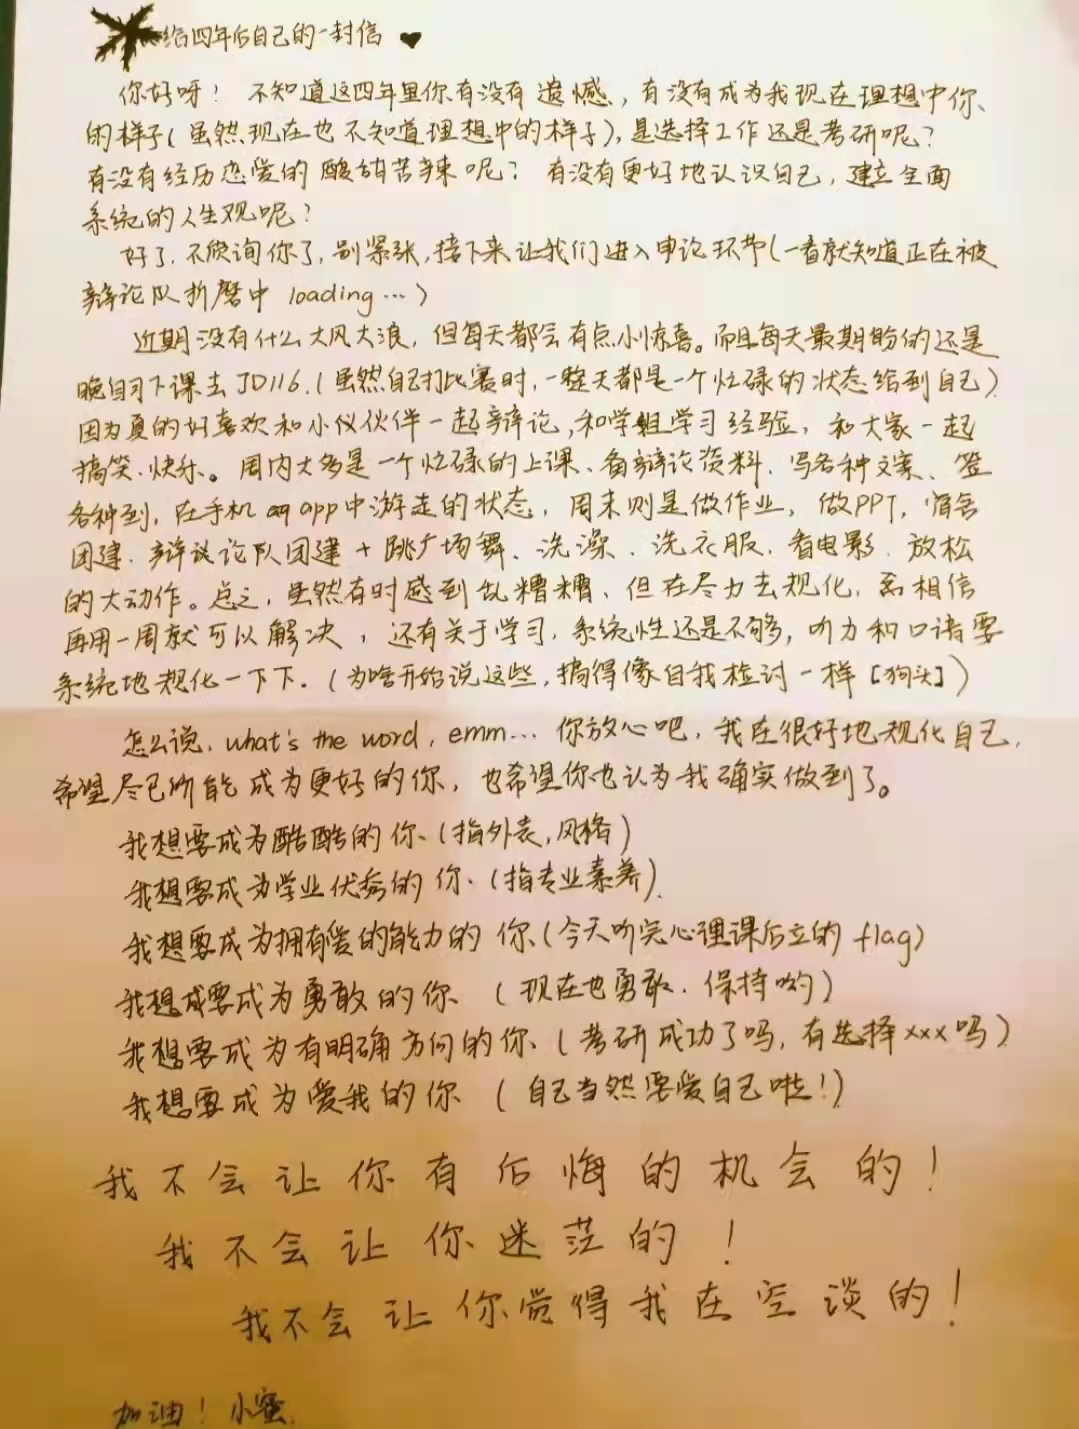 给四年后自己的一封信
你好呀！不知道这四年里你有没有遗憾，有没有成为我现在理想中你、
的样子（虽然现在也不知道理想中的样子），是选择工作还是考研呢？
有没有经历恋爱的酸甜苦辣呢？有没有更好地认识自己，建立全面
系统的人生观呢？
好了，不质询你了，别紧张，接下来让我们进入申论环节（一看就知道正在被
辩论队折磨中 loading …）
近期没有什么大风大浪，但每天都会有点小惊喜。而且每天最期盼的还是
晚自习下课去JD116.（虽然自己打比赛时，一整天都是一个忙碌的状态给到自己）
因为真的好喜欢和小伙伴一起辩论，和学姐学习经验，和大家一起
搞笑、快乐。周内大多是一个忙碌的上课、备辩论资料、写各种文案、签
各种到，在手机 app中游走的状态，周末则是做作业，做PPT，宿舍
团建、辩论队团建+跳广场舞、洗澡、洗衣服、看电影、放松
的大动作。总之，虽然有时感到乱糟糟、但在尽力去规化，相信
再用一周就可以解决，还有关于学习，系统性还是不够，听力和口语要
系统地规化一下下.（为啥开始说这些，搞得像自我检讨一样[狗头]）
怎么说，what's the word，emm… 你放心吧，我在很好地规化自己，
希望尽己所能成为更好的你，也希望你也认为我确实做到了。
我想要成为酷酷的你、（指外表，风格）
我想要成为学业优秀的你.（指专业素养）.
我想要成为拥有爱的能力的你（今天听完心理课后立的flag）
我想要成为勇敢的你、（现在也勇敢，保持哟）
我想要成为有明确方向的你、（考研成功了吗，有选择xxx吗）
我想要成为爱我的你（自己当然要爱自己啦！）
我不会让你有后悔的机会的！
我不会让你迷茫的！
我不会让你觉得我在空谈的！
加油！小蜜.